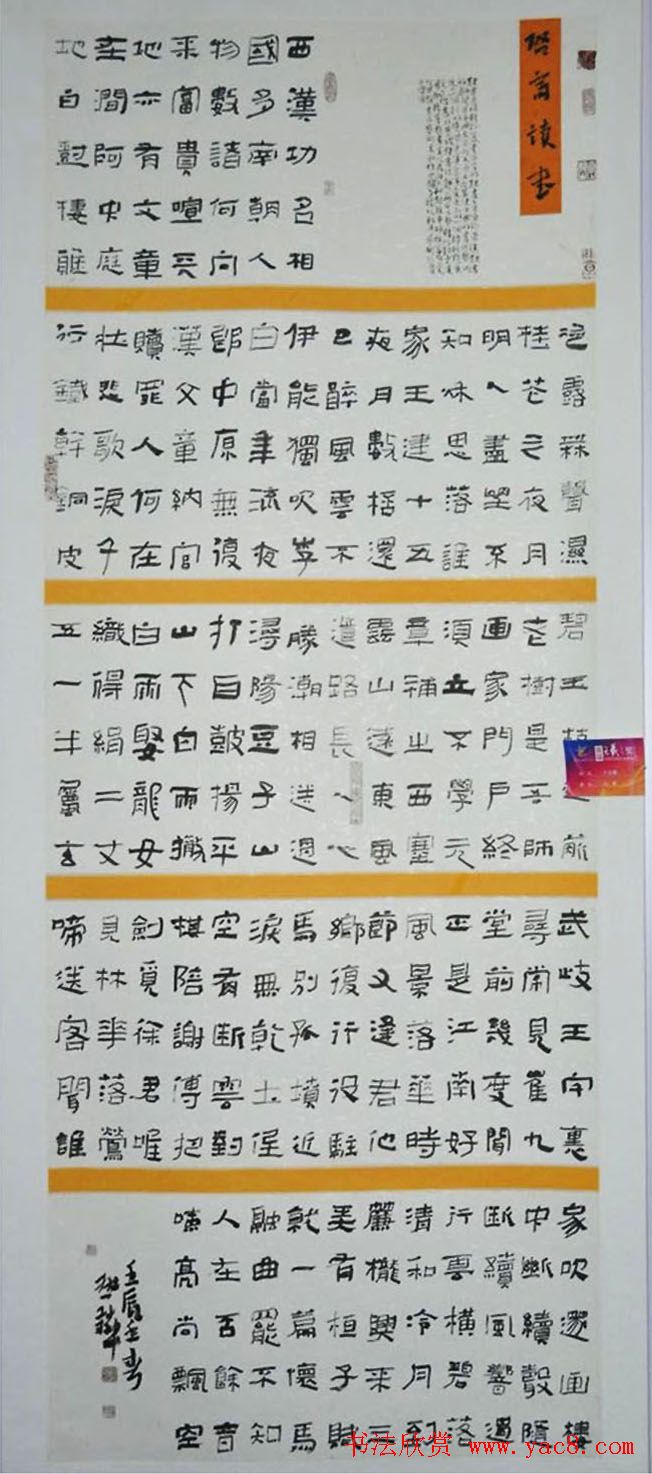 齋讀書
西漢功名相
國多南朝人
物數諸何向
來富貴喧天
地亦有文章
在澗阿中庭
地白尌棲雅
冷露無聲濕
桂花之夜月
明人盡望不
知秋思落誰
家王建十五
夜月數括還
已醉風雲不
伊能獨吹孝
白當年流夜
郎中原無復
漢文章納官
贖罪人何在
壯悲歌淚千
行鐵幹銅皮
碧玉枝之前
老樹是吾師
画家門戶終
須立不學元
羣補之西塞
雲山遠東風
道路長人心
勝潮相送過
潯陽豆子山
打白鼓揚平
山下白雨撒
白雨娶龍女
織得絹二丈
五一半屬玄
武岐王宅裏
尋常見崔九
堂前幾度聞
正是江南好
風景落華時
節又逢君他
鄉復行役駐
馬別孤墳近
淚無乾土低
空有斷雲對
棋陪謝傅把
劍覓徐君唯
見林華落鶯
啼送客聞誰
家吹邃画樓
中斷續聲隨
斷續風響遏
行雲橫碧落
清和冷月到
簾櫳興來三
美有桓子賦
就一篇懷馬
融曲罷不知
人在否餘音
嘹亮尚飄空
壬辰
书法欣赏 www.yac8.com